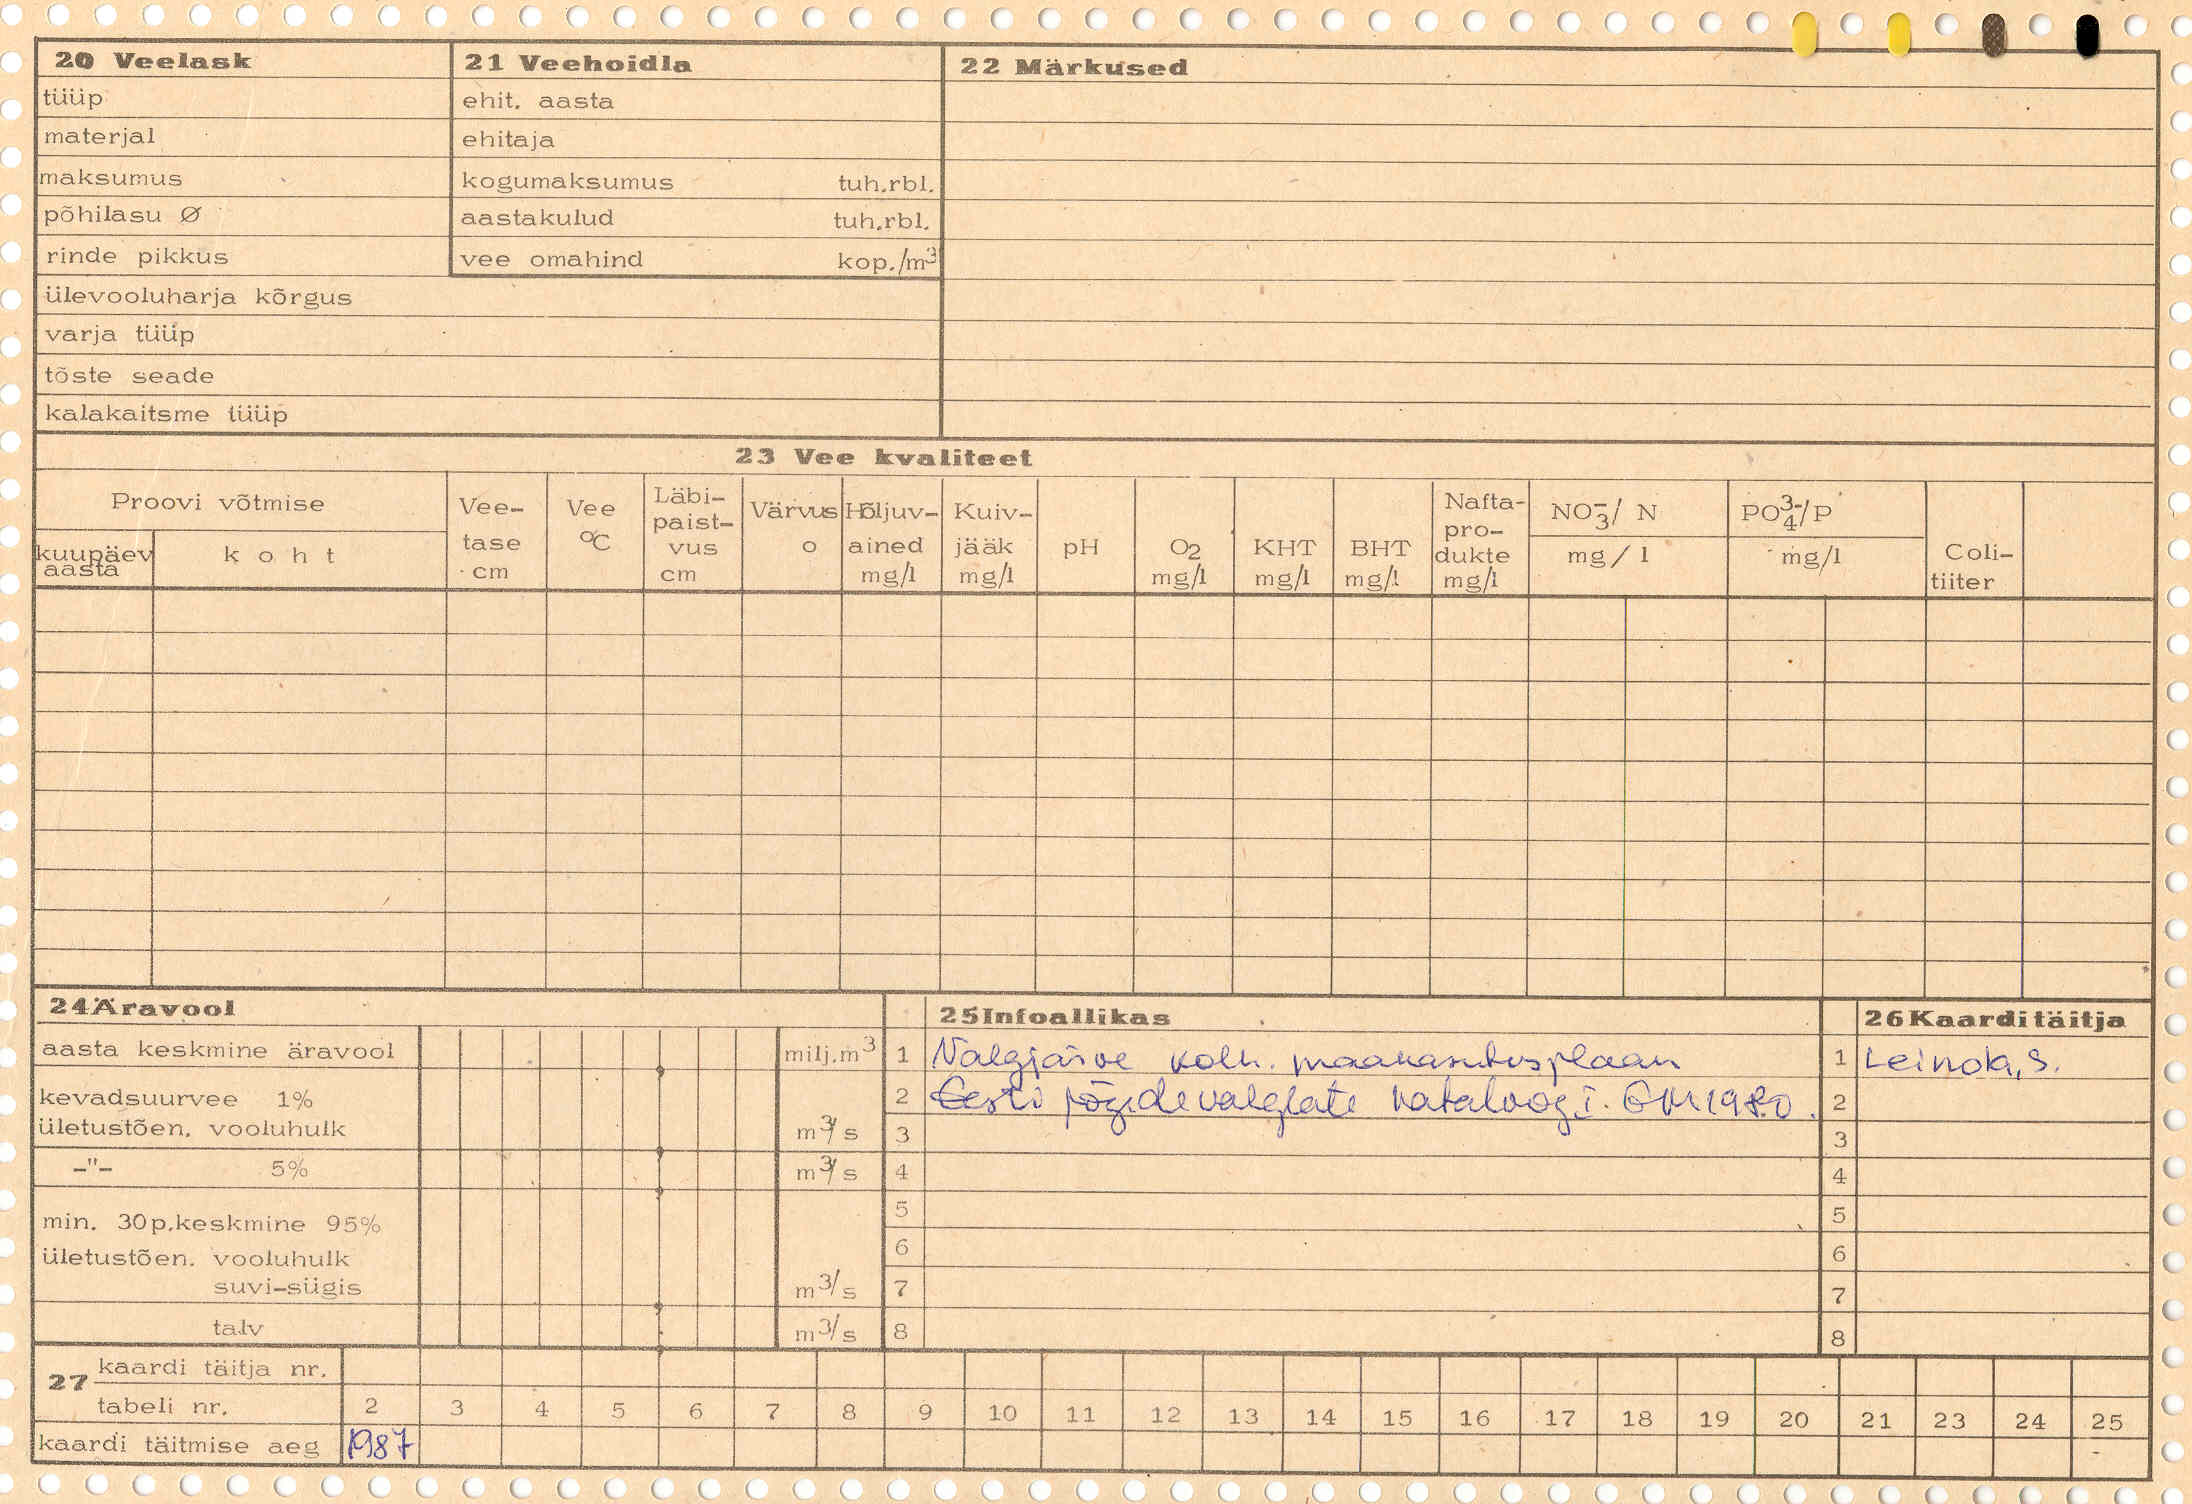 20 Veelask
tüüp
materjal
maksumus
põhilasu Ø
rinde pikkus
ülevooluharja kõrgus
varja tüüp
tõste seade
kalakaitsme tüüp
21 Veehoidla
ehit. aasta
ehitaja
kogumaksumus tuh.rbl.
aastakulud tuh.rbl.
vee omahind kop./m³
22 Märkused
23 Vee kvaliteet
Proovi võtmise
kuupäev
aasta
koht
Vee-
tase
cm
Vee
°C
Läbi-
paist-
vus
cm
Värvus
o
Hõljuv-
ained
mg/l
Kuiv-
jääk
mg/l
pH
O₂
mg/l
KHT
mg/l
BHT
mg/l
Nafta-
pro-
dukte
mg/l
NO₃⁻/ N
mg/l
PO₄³⁻/P
mg/l
Coli-
tiiter
24 Äravool
aasta keskmine äravool milj.m³
kevadsuurvee 1%
ületustõen. vooluhulk m³/s
-"- 5% m³/s
min. 30p.keskmine 95%
ületustõen. vooluhulk
suvi-sügis m³/s
talv m³/s
25 Infoallikas
1 Valgjärve kolh. maakasutusplaan
2 Eesti jõgede valglate kataloog I. 1980.
3
4
5
6
7
8
26 Kaarditäitja
1 Leinola, S.
2
3
4
5
6
7
8
27 kaardi täitja nr.
tabeli nr. 2 3 4 5 6 7 8 9 10 11 12 13 14 15 16 17 18 19 20 21 23 24 25
kaardi täitmise aeg 1987